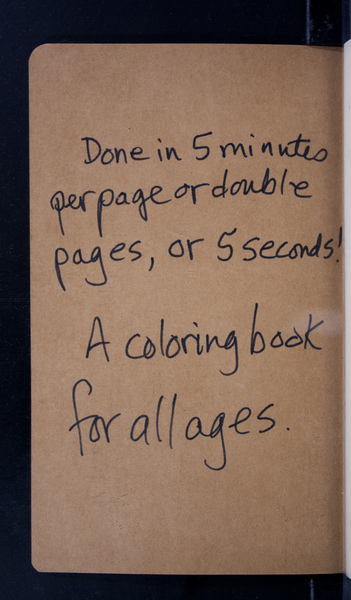 Done in 5 minutes
per page or double
pages, or 5 seconds!
A coloring book
for all ages.